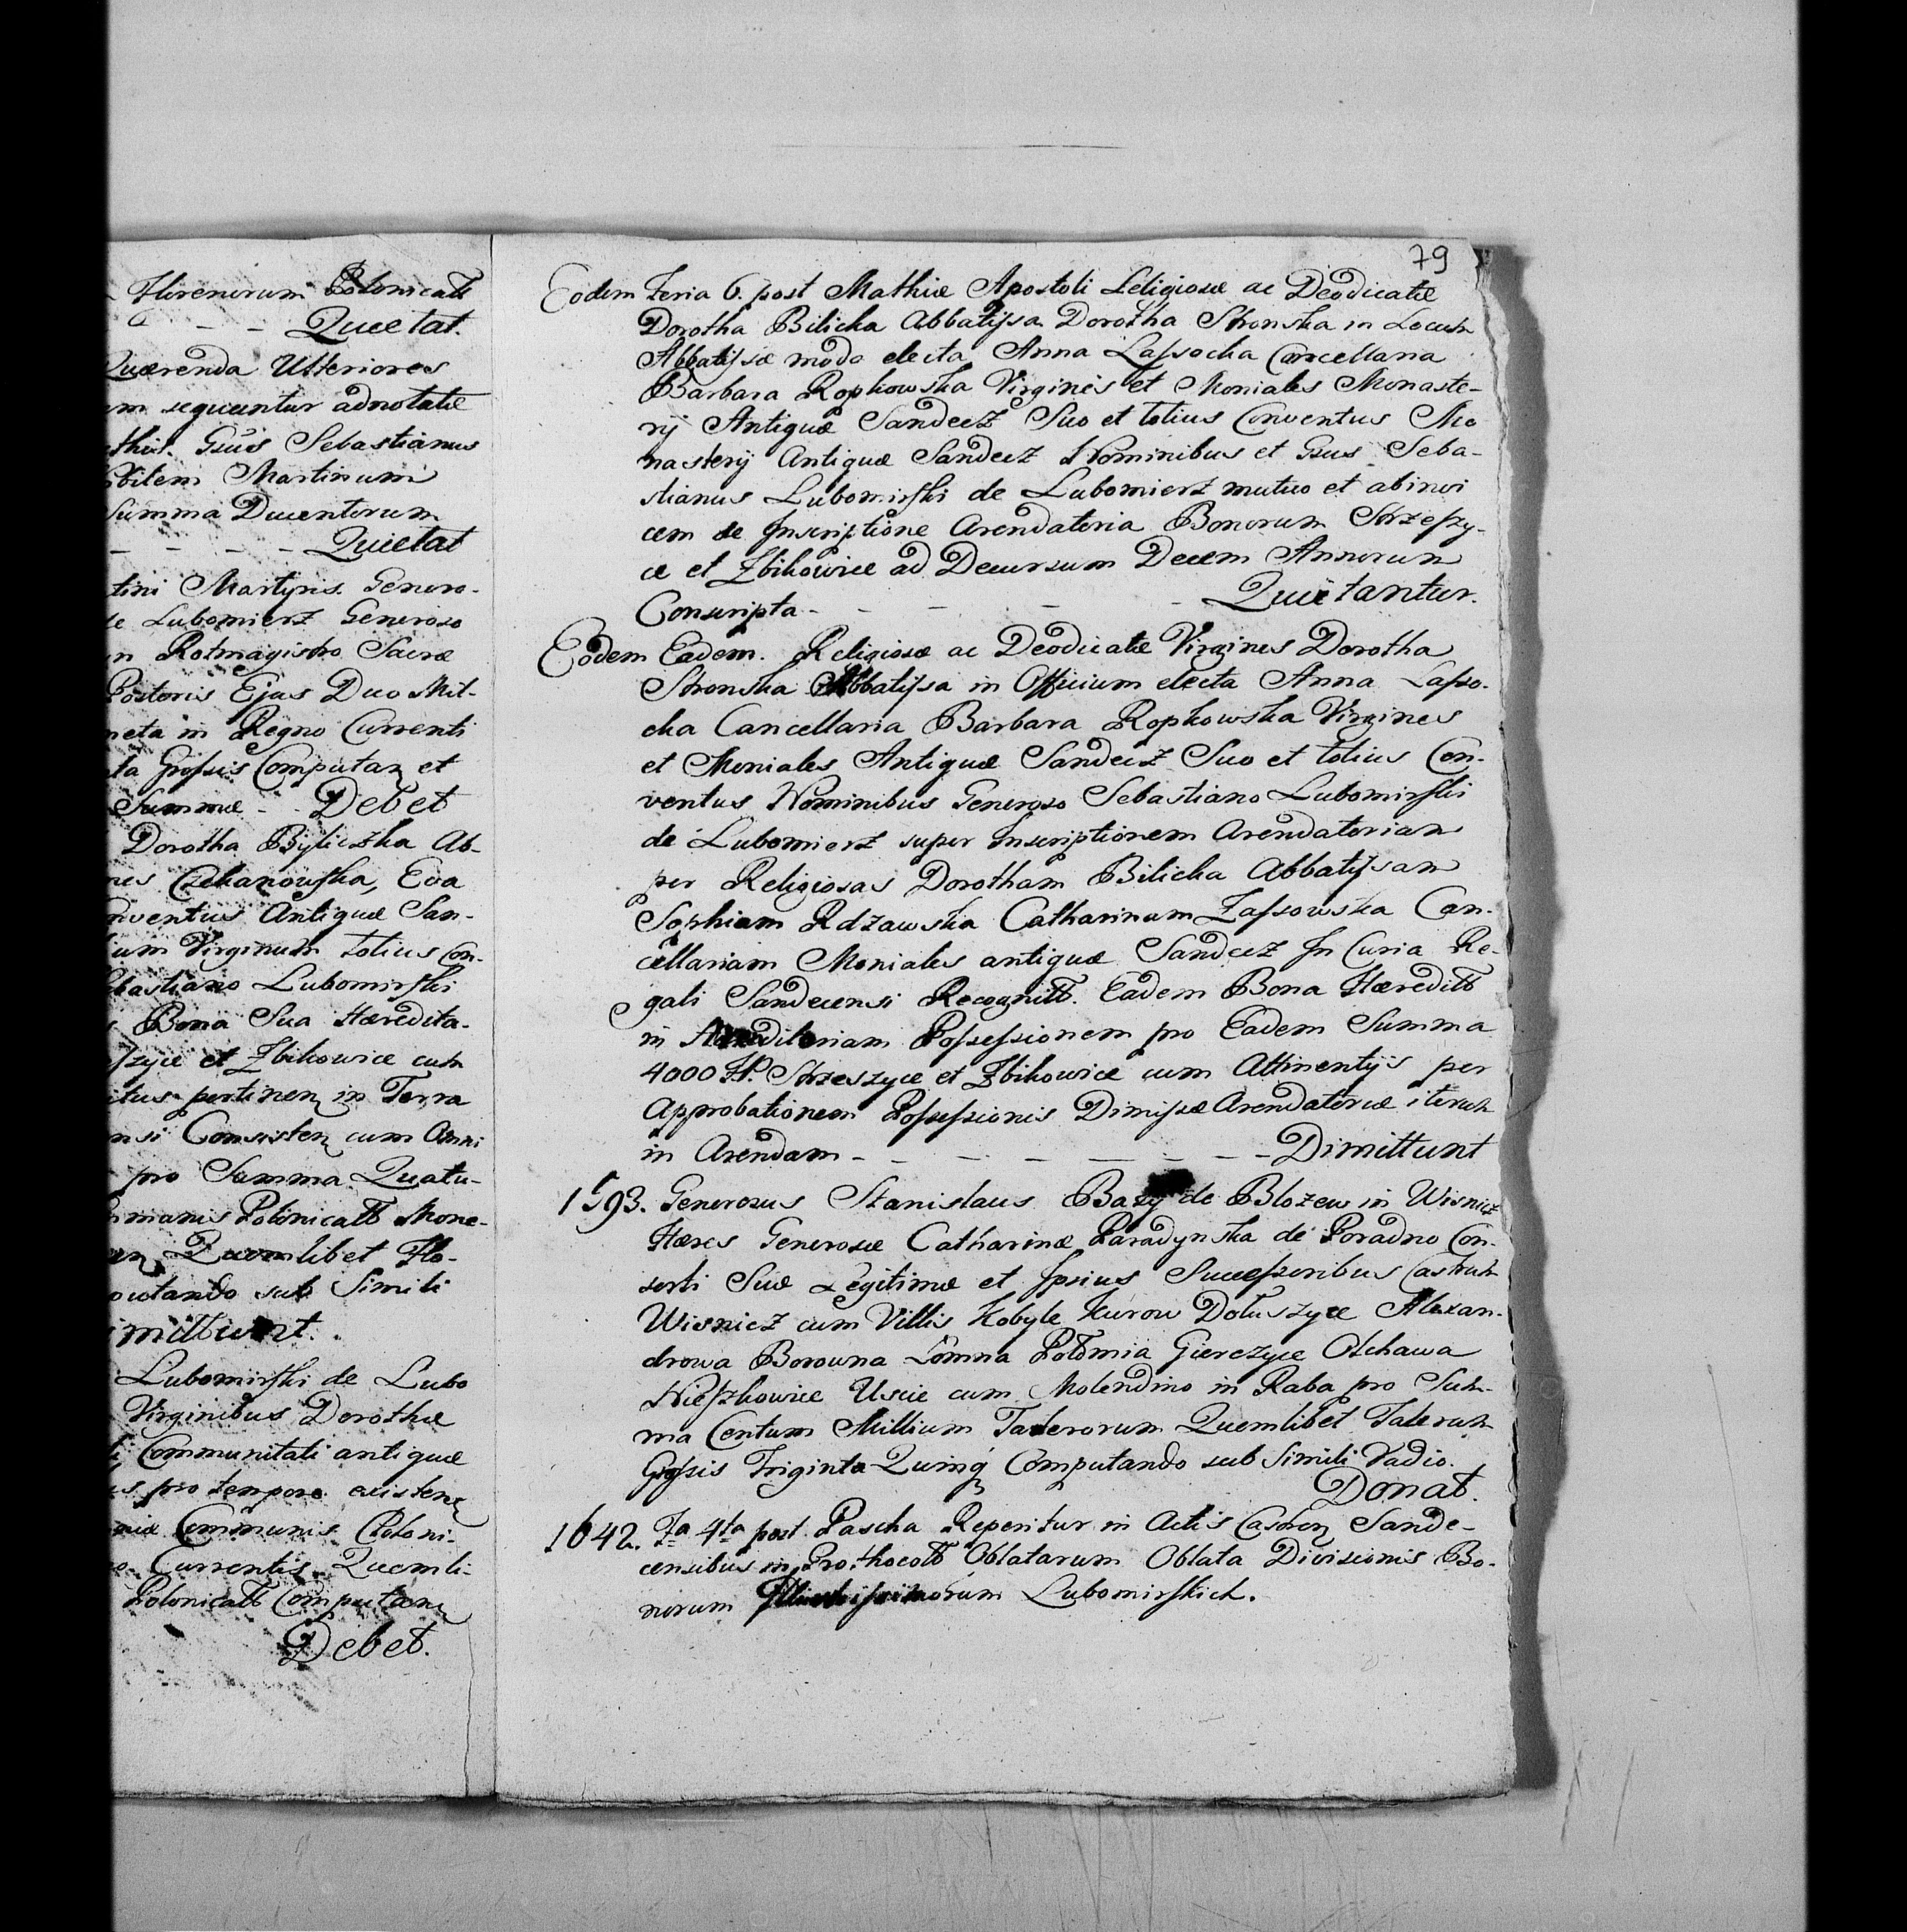 Florenorum Polonicalt
Quietat.
Quærenda Ulteriores
sequuntur adnotatæ
Gsus Sebastianus
Martinum
Summa Ducentorum
Quietat
Martyris. Genero-
de Lubomierz Generoso
Rotmagistro Sacræ
Posteris Ejus Duo Mil-
in Regno Currenti
Grossis Computan et
Summæ - - Debet
Dorotha Byliczka Ab-
Czekanowska, Eva
Antiquæ San-
Virginum totius Con-
Lubomirski
Bona Sua Hæredita-
et Zbikowice cum
pertinen in Terra
Consisten cum Omni
pro Summa Quatu-
Polonicalt Mone-
Quemlibet Flo-
sub Simili
Lubomirski de Lubo
Virginibus Dorothæ
Communitati antiquæ
pro tempore existen
Communis Poloni-
Currentis Quemli-
Polonicalt Computan
Debet.
79
Eodem Feria 6. post Mathiæ Apostoli Religiosæ ac Deodicatæ
Dorotha Bilicka Abbatissa Dorotha Stronska in Locum
Abbatissæ modo electa Anna Lassocka Cancellaria
Barbara Ropkowska Virgines et Moniales Monaste-
rij Antiquæ Sandecz Suo et totius Conventus Mo
nasterij Antiquæ Sandecz Nominibus et Gsus Seba-
stianus Lubomirski de Lubomierz mutuo et abinvi
cem de Inscriptione Arendatoria Bonorum Strzeszy-
ce et Zbikowice ad Decursum Decem Annorum
Conscripta - - - - Quietantur.
Eodem Eadem. Religiosæ ac Deodicatæ Virgines Dorotha
Stronska Abbatissa in Officium electa Anna Lasso-
cka Cancellaria Barbara Ropkowska Virgines
et Moniales Antiquæ Sandecz Suo et totius Con-
ventus Nominibus Generoso Sebastiano Lubomirski
de Lubomierz super Inscriptionem Arendatoriam
per Religiosas Dorotham Bilicka Abbatissam
Sophiam Rdzawska Catharinam Zassowska Can-
cellariam Moniales antiquæ Sandecz In Curia Re-
gali Sandecensi Recognitt. Eadem Bona Hæreditt
in Possessionem pro Eadem Summa
4000 Fl. Strzeszyce et Zbikowice cum Attinentijs per
Approbationem Possessionis Dimissæ Arendatoriæ iterum
in Arendam - - - - - - - Dimittunt
1593. Generosus Stanislaus Barzy de Blozew in Wisnicz
Hæres Generosæ Catharinæ Paradynska de Poradno Con-
sorti Suæ Legitimæ et Ipsius Successoribus Castrum
Wisnicz cum Villis Kobyle Kurow Doluszyce Alexan-
drowa Borowna Łomna Połomia Gierczyce Olchawa
Nieszkowice Uscie cum Molendino in Raba pro Sum-
ma Centum Millium Talerorum Quemlibet Talerum
Grossis Triginta Quinq Computando sub Simili Vadio.
Donat.
1642. Fa 4ta post Pascha Reperitur in Actis Castren Sande-
censibus in Prothocoll Oblatarum Oblata Divisionis Bo-
norum Illustrissimorum Lubomirskich.